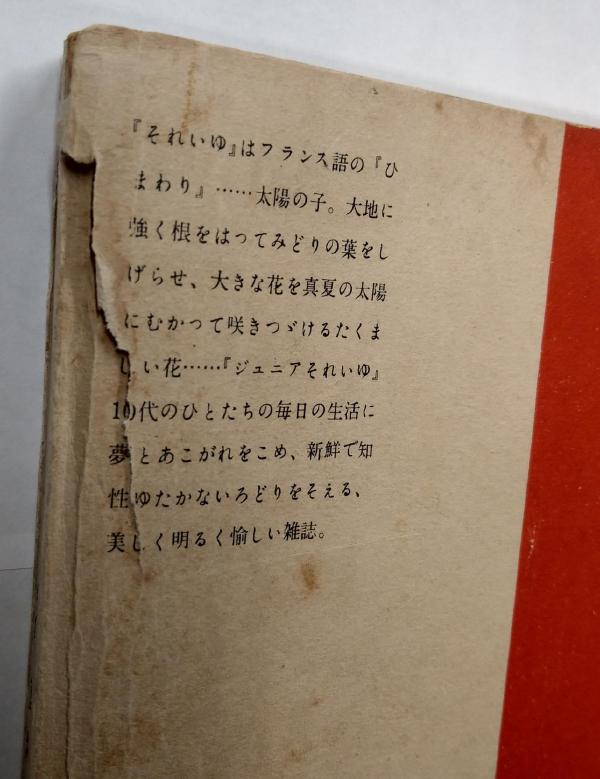 『それいゆ』はフランス語の『ひ
まわり』……太陽の子。大地に
強く根をはってみどりの葉をし
げらせ、大きな花を真夏の太陽
にむかつて咲きつゞけるたくま
しい花……『ジュニアそれいゆ』
10代のひとたちの毎日の生活に
夢とあこがれをこめ、新鮮で知
性ゆたかないろどりをそえる、
美しく明るく愉しい雑誌。